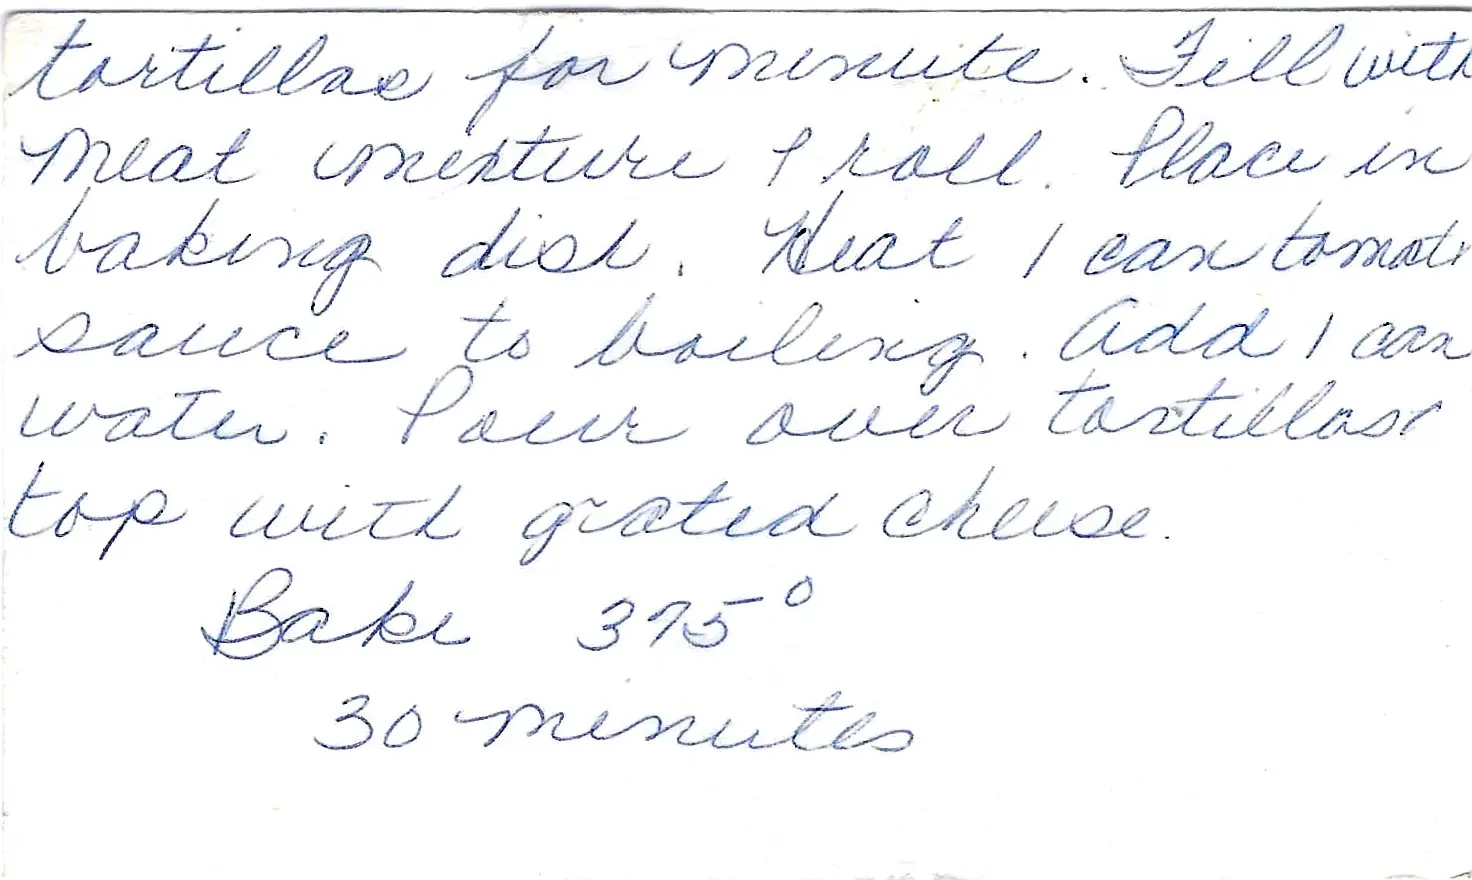 tortillas for minute. Fill with
meat mixture & roll. Place in
baking dish. Heat 1 can tomato
sauce to boiling. Add 1 can
water. Pour over tortillas &
top with grated cheese.
Bake 375°
30 minutes